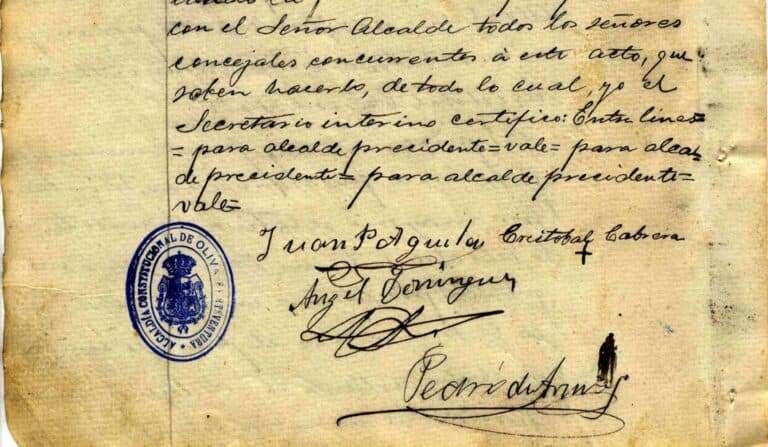 con el Señor Alcalde todos los señores
concejales concurrentes á este acto, que
saben hacerlo, de todo lo cual, yo el
Secretario interino certifico: Entre lineas=
= para alcalde precidente=vale= para alcal
de precidente= para alcalde precidente=
vale=
Juan P Aguilar Cristobal Cabrera
Angel Dominguez
Pedro de Armas
ALCALDÍA CONSTITUCIONAL DE OLIVA